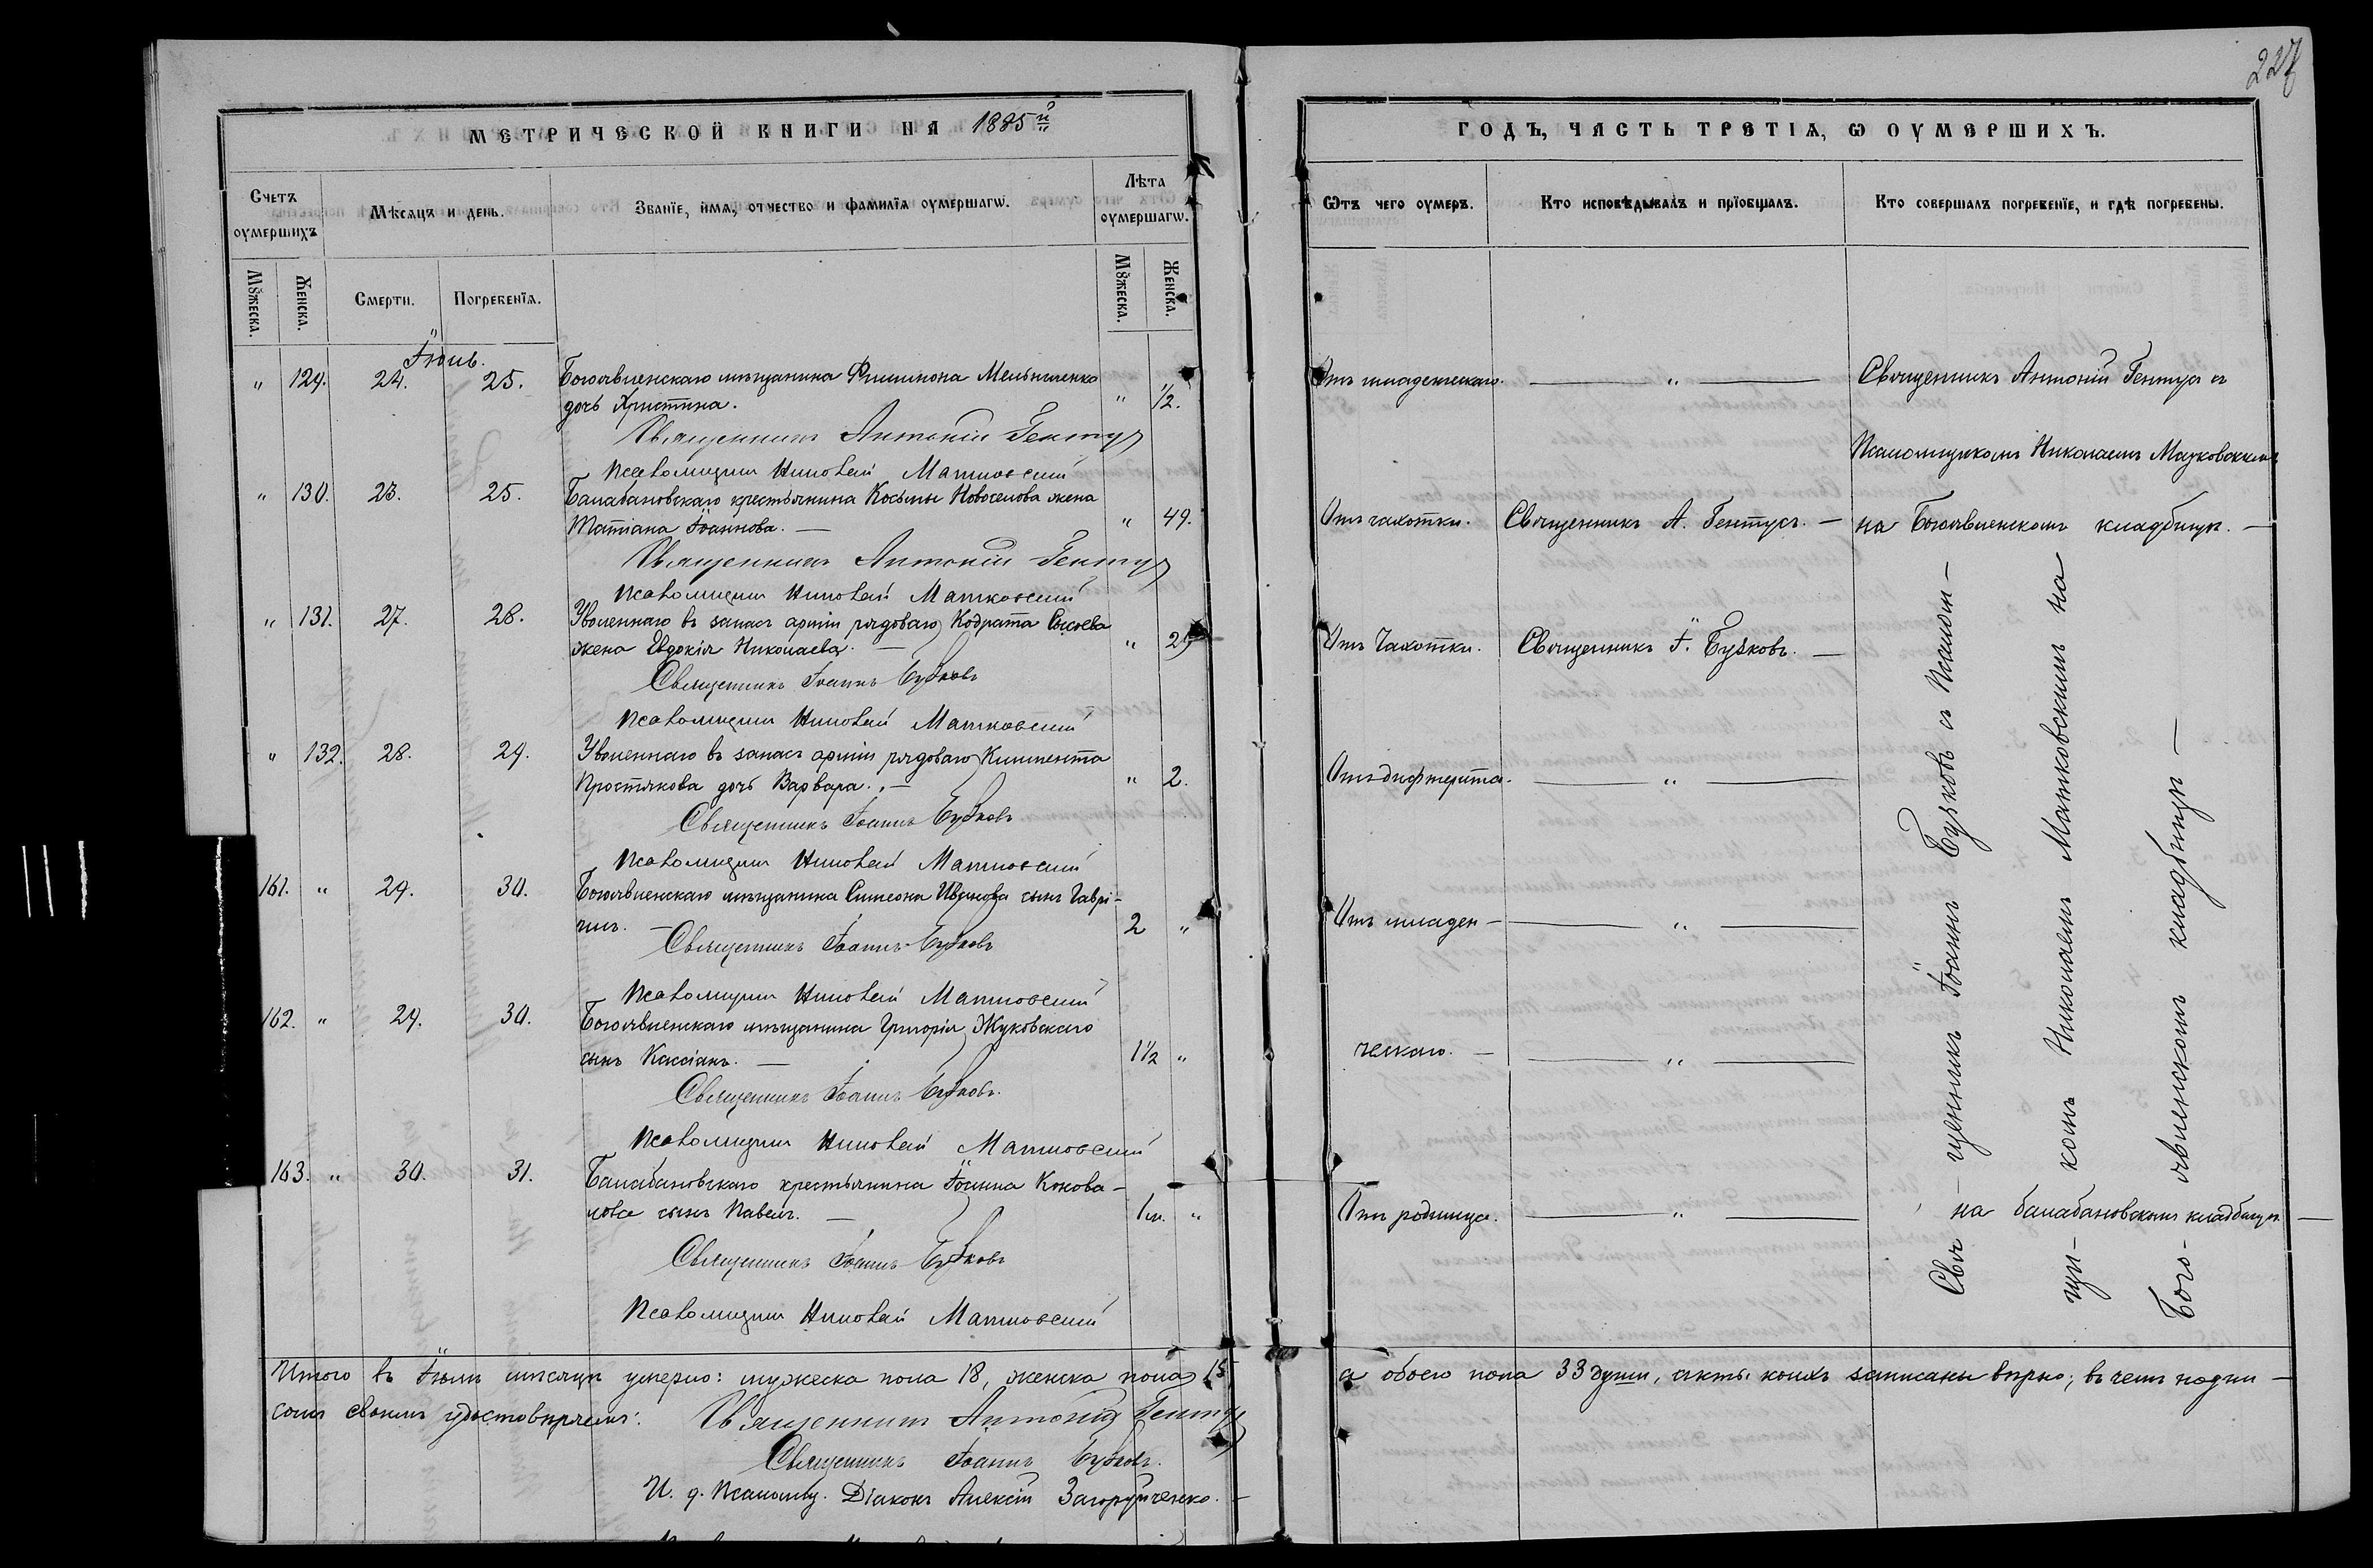 227
МЕТРИЧЕСКОЙ КНИГИ НА 1885й
Счетъ оумершихъ
Мѣсяцъ и день.
Званїе, имя, отчество и фамилїя оумершагѡ.
Лѣта оумершагѡ.
Мꙋжеска.
Женска.
Смерти.
Погребенїя.
Мꙋжеска.
Женска.
Іюль.
" 129. 24. 25. Богоявленскаго мѣщанина Филимона Мельниченко
дочь Христина. " 1/2.
Священникъ Антоній Гентус
Псаломщикъ Николай Матковскій
" 130. 23. 25. Балабановскаго крестьянина Косьмы Новоселова жена
Татіана Іоаннова. — " 49.
Священникъ Антоній Гентус
Псаломщикъ Николай Матковскій
" 131. 27. 28. Уволеннаго въ запасъ арміи рядоваго Кодрата Сысоева
жена Евдокія Николаева. — "
Священникъ Іоаннъ Бузковъ
Псаломщикъ Николай Матковскій
" 132. 28. 29. Уволеннаго въ запасъ арміи рядоваго Климента
Простякова дочь Варвара. — " 2.
Священникъ Іоаннъ Бузковъ
Псаломщикъ Николай Матковскій
161. " 29. 30. Богоявленскаго мѣщанина Симеона Иванова сынъ Гаврі-
илъ. — 2 "
Священникъ Іоаннъ Бузковъ
Псаломщикъ Николай Матковскій
162. " 29. 30. Богоявленскаго мѣщанина Григорія Жуковскаго
сынъ Кассіанъ. — 1 1/2 "
Священникъ Іоаннъ Бузковъ.
Псаломщикъ Николай Матковскій
163. " 30. 31. Балабановскаго крестьянина Іоанна Конова-
лова сынъ Павелъ. — 1м. "
Священникъ Іоаннъ Бузковъ
Псаломщикъ Николай Матковскій
Итого въ Іюлѣ мѣсяцѣ умерло: мужеска пола 18, женска пола 15
сомъ своимъ удостовѣряемъ: Священникъ Антоній Гентус
Священникъ Іоаннъ Бузковъ.
И. д. Псаломщ. Діаконъ Алексій
ГОДЪ, ЧАСТЬ ТРЕТІЯ, Ѡ ОУМЕРШИХЪ.
Ѿтъ чего оумеръ.
Кто исповѣдывалъ и прїобщалъ.
Кто совершалъ погребенїе, и гдѣ погребены.
Отъ младенческаго. — " — Священникъ Антоній Гентусъ съ
Псаломщикомъ Николаемъ Матковскимъ
Отъ чахотки. Священникъ А. Гентусъ. — на Богоявленскомъ кладбищѣ. —
Отъ Чахотки. Священникъ І. Бузковъ. —
Отъ дифтерита. — " —
Отъ младен- — " —
ческаго. — — " —
Отъ родимца. — " — на балабановскомъ кладбищѣ. —
Свя-щенникъ Іоаннъ Бузковъ съ Псалом-
щи-комъ Николаемъ Матковскимъ на
Бого-явленскомъ кладбищѣ —
а обоего пола 33 души, акты коихъ записаны вѣрно; въ чемъ подпи-